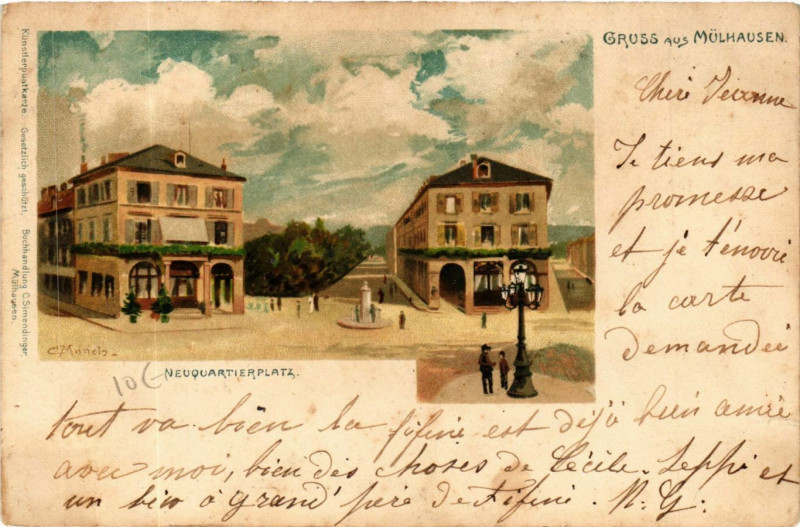 GRUSS AUS MÜLHAUSEN.
Künstlerpostkarte Gesetzlich geschützt. Buchhandlung C. Simendinger,
Mülhausen.
Chère Jeanne
Je tiens ma
promesse
et je t'envoie
la carte
demandée
C. Münch
NEUQUARTIERPLATZ.
10€
tout va bien la fifine est déjà bien amie
avec moi, bien des choses de Cécile. Seppi et
un bico à grand' père de Fifine. N. G.